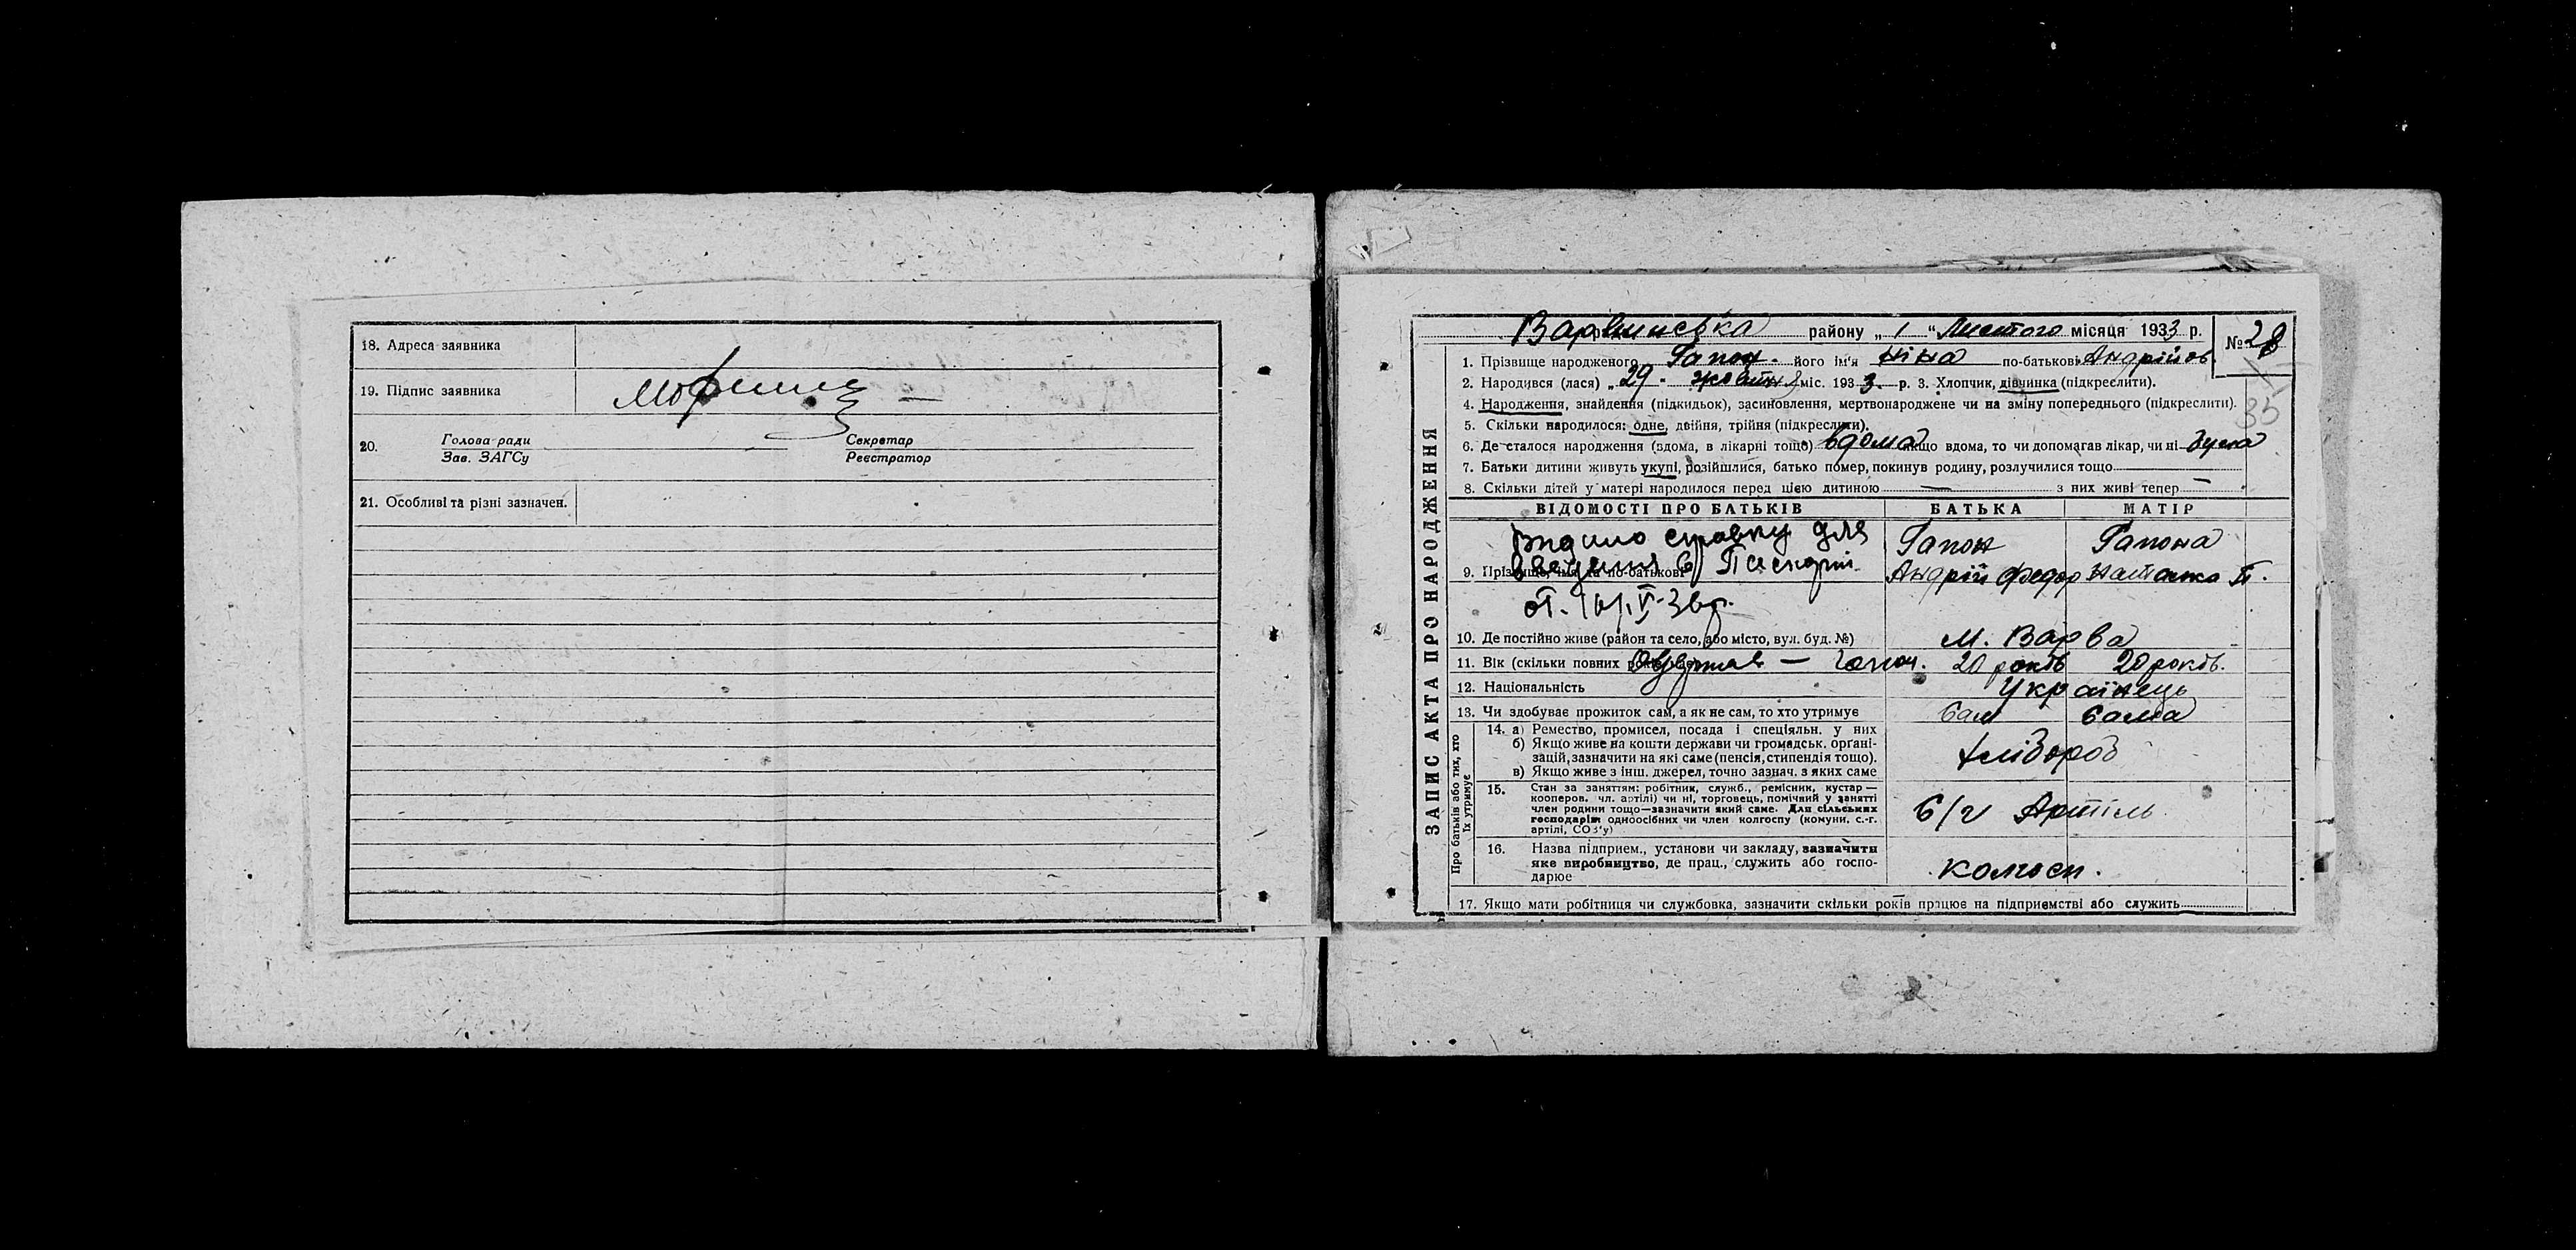 18. Адреса заявника
19. Підпис заявника
20. Голова ради Секретар
Зав. ЗАГСу Реєстратор
21. Особливі та різні зазначен.
ЗАПИС АКТА ПРО НАРОДЖЕННЯ
Варвинська району „ 1 “ Лютого місяця 1933 р. № 28
1. Прізвище народженого Гапон. його ім'я Ніна по-батькові Андрійов.
35
2. Народився (лася) „ 29. жовтня міс. 1933. р. 3. Хлопчик, дівчинка (підкреслити).
4. Народження, знайдення (підкидьок), засиновлення, мертвонароджене чи на зміну попереднього (підкреслити).
5. Скільки народилося: одне, двійня, трійня (підкреслити).
6. Де сталося народження (вдома, в лікарні тощо) вдома якщо вдома, то чи допомагав лікар, чи ні
7. Батьки дитини живуть укупі, розійшлися, батько помер, покинув родину, розлучилися тощо
8. Скільки дітей у матері народилося перед цією дитиною — з них живі тепер —
ВІДОМОСТІ ПРО БАТЬКІВ БАТЬКА МАТІР
справку для Гапон Гапона
9. Прізвище, ім'я та по-батькові Андрій Федор Наталка П.
от.
10. Де постійно живе (район та село, або місто, вул. буд. №) м. Варва
11. Вік (скільки повних років) — 20 років 20 років.
12. Національність Українець
13. Чи здобуває прожиток сам, а як не сам, то хто утримує Сам Сама
Про батьків або тих, хто їх утримує
14. а) Ремество, промисел, посада і спеціяльн. у них
б) Якщо живе на кошти держави чи громадськ. органі-
зацій, зазначити на які саме (пенсія, стипендія тощо). Хлібороб
в) Якщо живе з інш. джерел, точно зазнач. з яких саме
15. Стан за заняттям: робітник, служб., ремісник, кустар —
кооперов. чл. артілі) чи ні, торговець, помічний у занятті
член родини тощо—зазначити який саме. Для сільських С/г Артіль
господарів одноосібних чи член колгоспу (комуни, с.-г.
артілі, СОЗ'у)
16. Назва підприєм., установи чи закладу, зазначити
яке виробництво, де прац., служить або госпо- колгосп.
дарює
17. Якщо мати робітниця чи службовка, зазначити скільки років працює на підприємстві або служить —